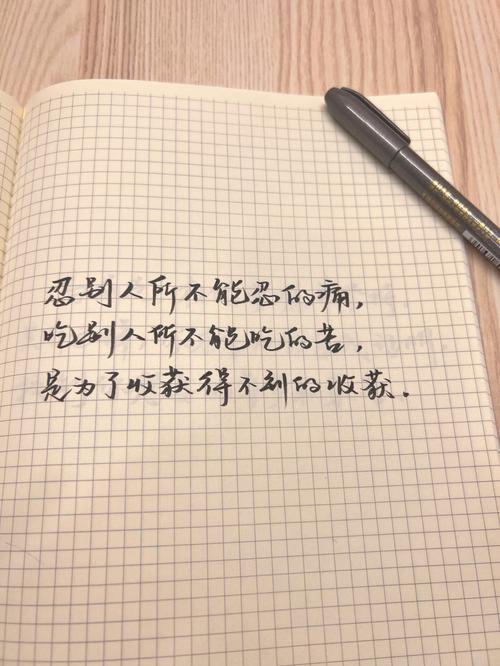 忍别人所不能忍的痛,
吃别人所不能吃的苦,
是为了收获得不到的收获.